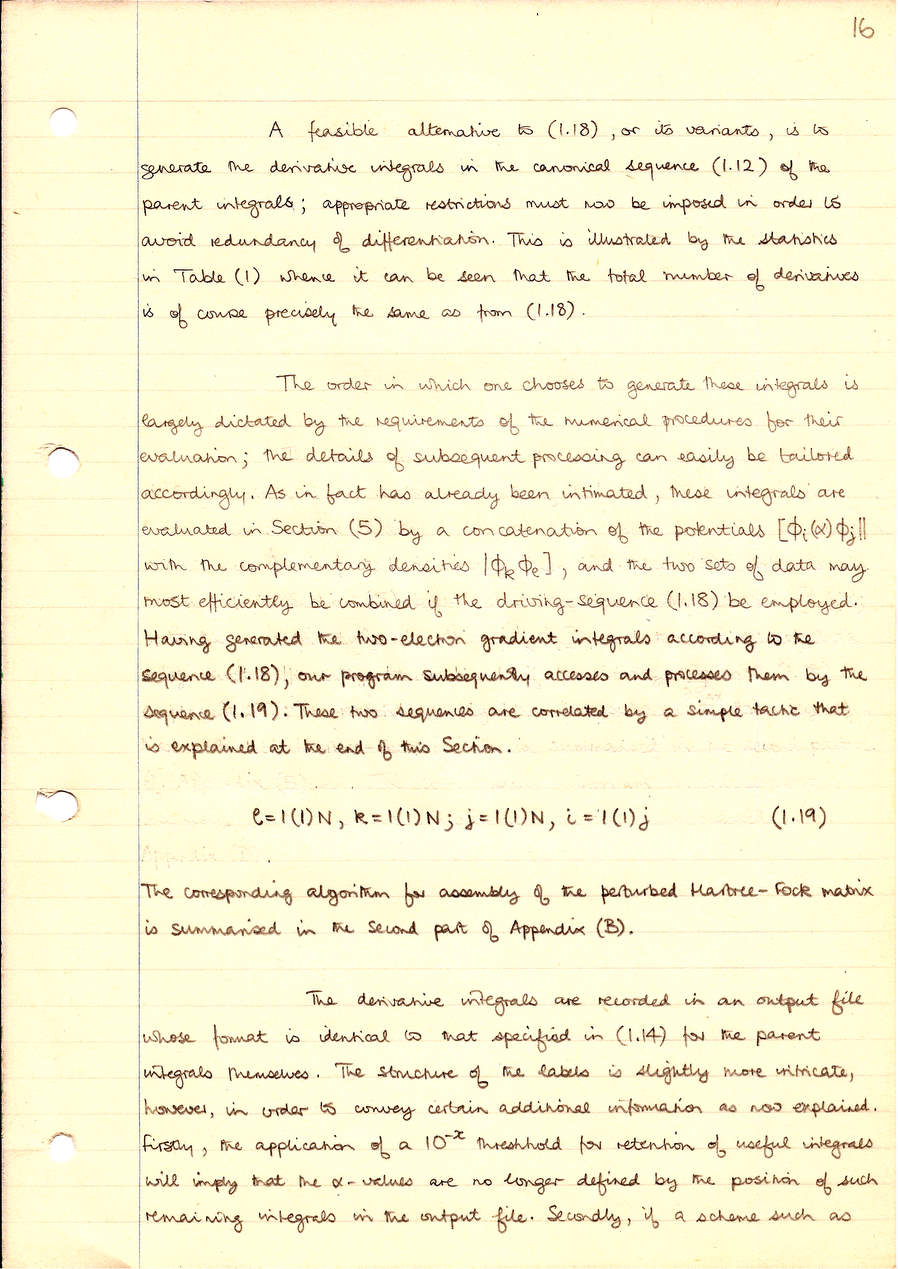 16
A feasible alternative to (1.18), or its variants, is to
generate the derivative integrals in the canonical sequence (1.12) of the
parent integrals; appropriate restrictions must now be imposed in order to
avoid redundancy of differentiation. This is illustrated by the statistics
in Table (1) whence it can be seen that the total number of derivatives
is of course precisely the same as from (1.18).
The order in which one chooses to generate these integrals is
largely dictated by the requirements of the numerical procedures for their
evaluation; the details of subsequent processing can easily be tailored
accordingly. As in fact has already been intimated, these integrals are
evaluated in Section (5) by a concatenation of the potentials [ϕᵢ(α)ϕⱼ||
with the complementary densities |ϕₖϕₑ], and the two sets of data may
most efficiently be combined if the driving-sequence (1.18) be employed.
Having generated the two-electron gradient integrals according to the
sequence (1.18), our program subsequently accesses and processes them by the
sequence (1.19). These two sequences are correlated by a simple tactic that
is explained at the end of this Section.
ℓ=1(1)N, k=1(1)N; j=1(1)N, i=1(1)j (1.19)
The corresponding algorithm for assembly of the perturbed Hartree-Fock matrix
is summarised in the second part of Appendix (B).
The derivative integrals are recorded in an output file
whose format is identical to that specified in (1.14) for the parent
integrals themselves. The structure of the labels is slightly more intricate,
however, in order to convey certain additional information as now explained.
Firstly, the application of a 10⁻ˣ threshhold for retention of useful integrals
will imply that the α-values are no longer defined by the position of such
remaining integrals in the output file. Secondly, if a scheme such as